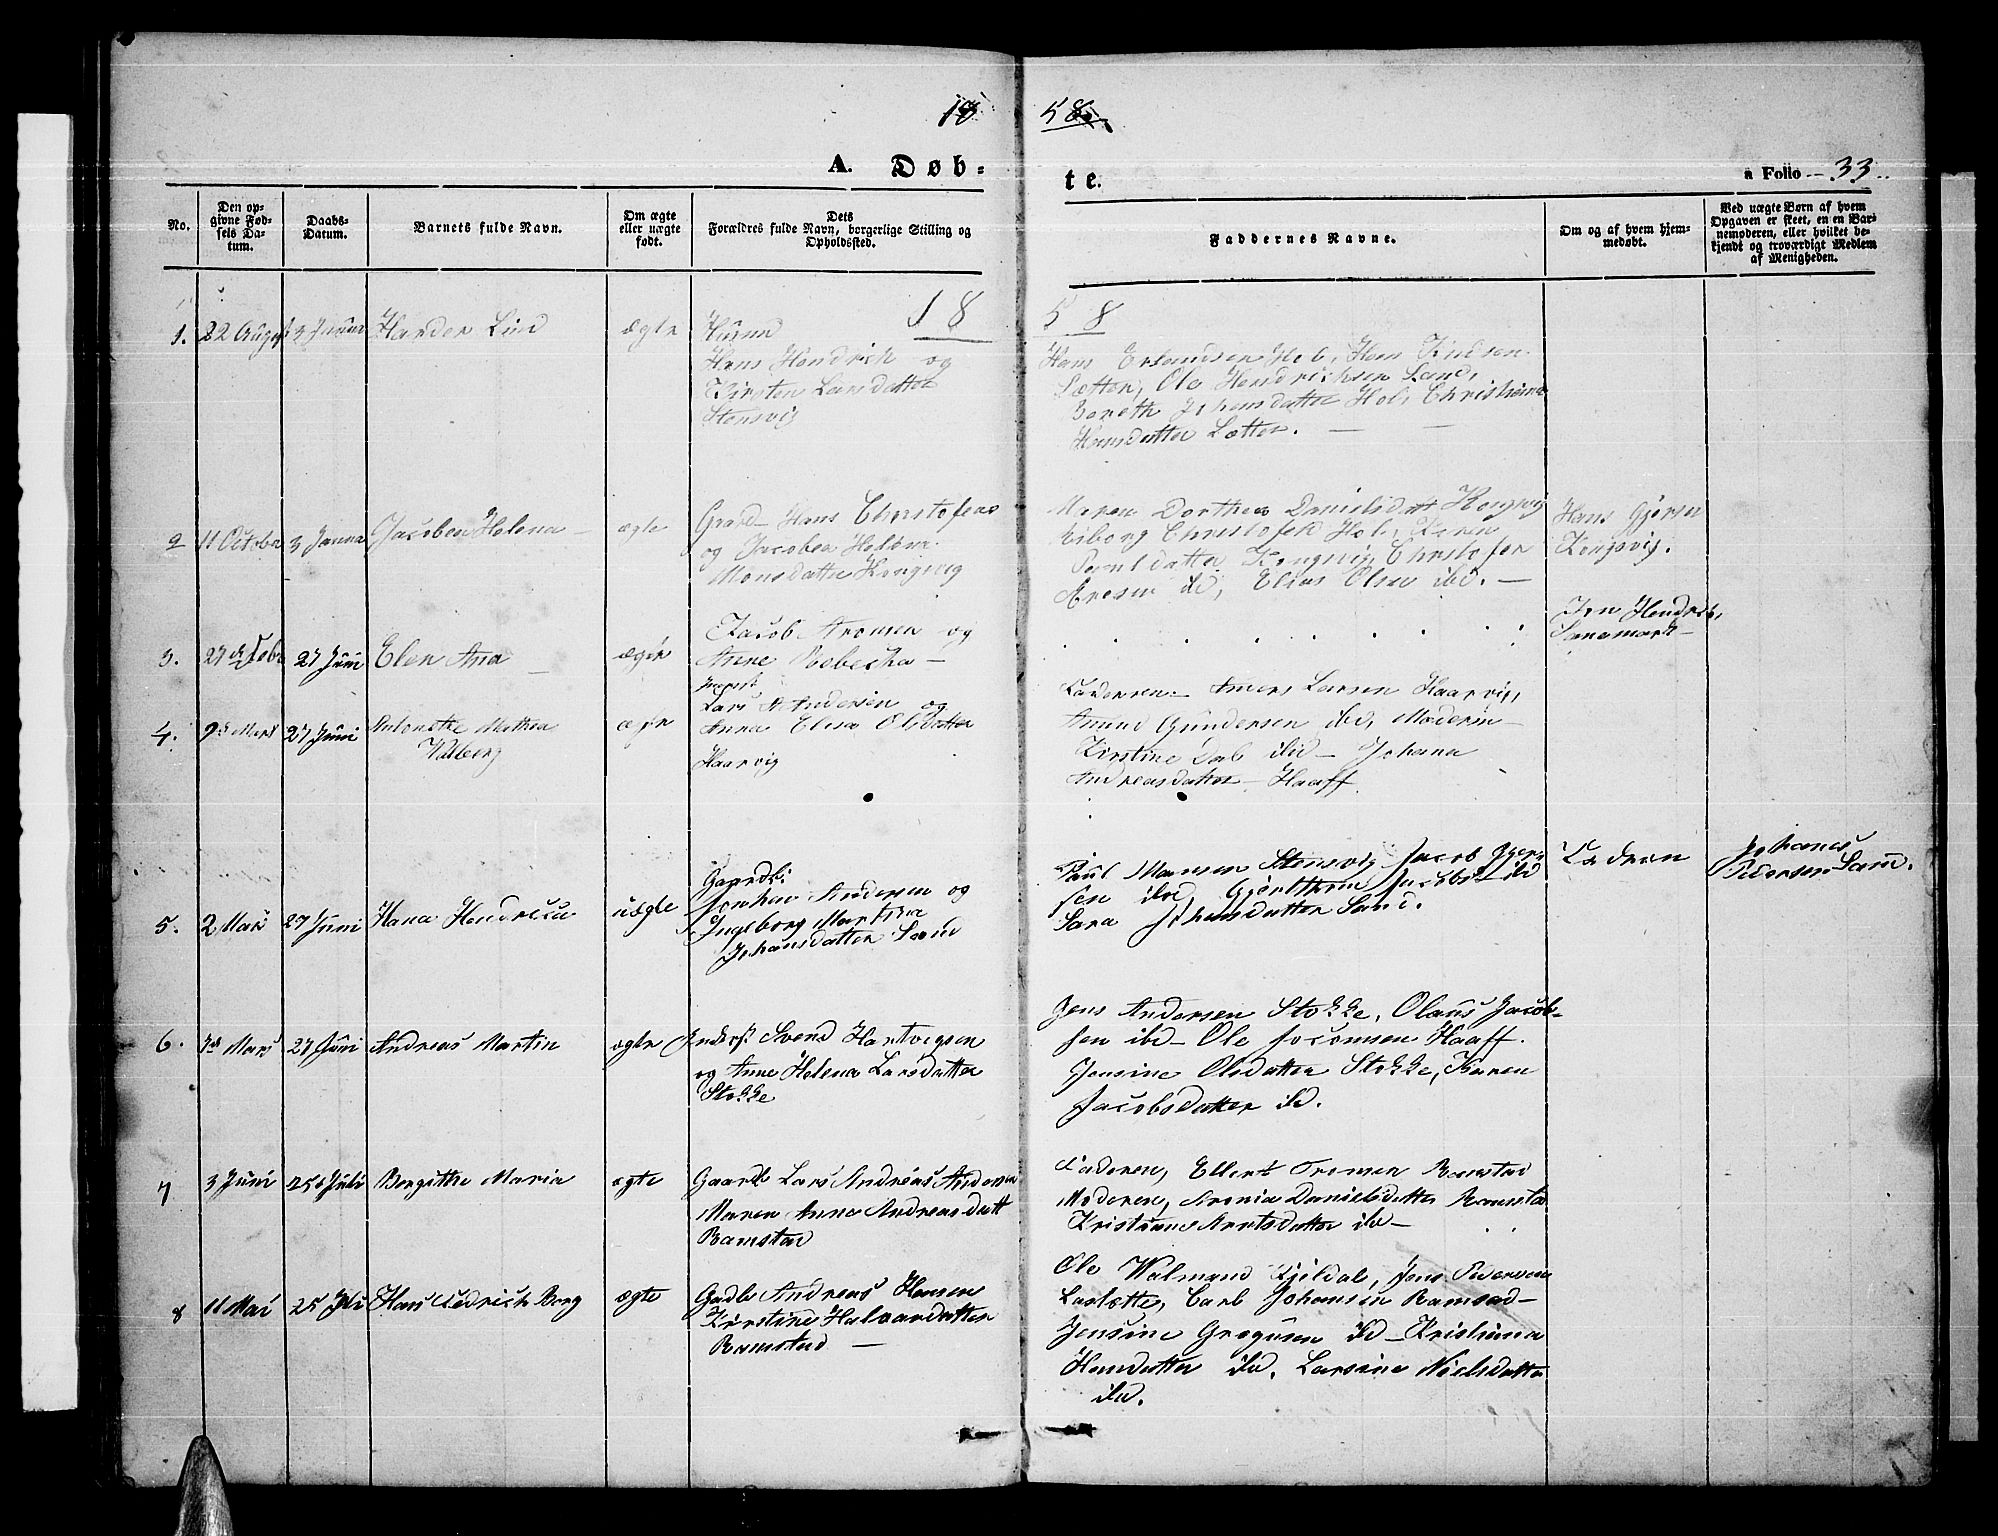 18 58
A. Døb-te.
a Folio 33
No.
Den op-
givne Fød-
sels Da-
tum.
Daabs-
Datum.
Barnets fulde Navn.
Om ægte
eller uægte
født.
Dets
Forældres fulde Navn, borgerlige Stilling og
Opholdssted.
Faddernes Navne.
Om og af hvem hjem-
medøbt.
Ved uægte Børn af hvem
Opgaven er skeet, en en Bar-
nemoderen, eller hvilket be-
kjendt og troværdigt Medlem
af Menigheden.
18 58
1. 22 August 3 Januar Harder Lind ægte
Husm
Hans Hendrich og
Kirsten Larsdatter
Stensvig
Hans Erlandsen Hol, Hans Knudsen
Sætter, Ole Hendrichsen Sand,
Bereth Johansdatter Hol, Christiane
Hansdatter Sætter.
2 11 October 3 Janua Jacobea Helena ægte
Grbd Hans Christofers
og Jacobea Helena
Monsdatter Kongsvig
Maren Dorthea Danielsdatt Kongsvig
Christofer Hol, Karen
Poulsdatter Kongsvig, Christofer
Aresen ibd, Elias Olsen ibd.
Hans Gjørsen
Kongsvig.
3. 27 Octobr 27 Juni Elen Ana ægte
Jacob Aronsen og
Anne Rebecka
Jon Hendrik,
Sanemark
4. Mars 27 Juni Antonette Mathea
Valberg
ægte
Lars A Andersen og
Anna Elisa Olsdatter
Haarvig
Faderen Amers Larsen Haarvig,
Amund Gundersen ibd, Moderen
Kirstine Dal ibd Johana
Andreasdatter Haaff
5. 2 Mars 27 Juni Hana Hendrecia uægte
Gaardb:
Jonhan Andersen og
Ingeborg Martina
Johansdatter Sand
Paul Monsen Stensvig Jacob Gjer-
sen ibd, Jacobs ibd
Sara Johansdatter Sand.
Faderen
Johanes
Pedersen Sand.
6. Mars 27 Juni Andreas Martin ægte
Inderst Svend Hartvigsen
og Anne Helena Larsdatter
Stokke
Jens Andersen Stokke, Olaus Jacob-
sen ibd Ole Jocomsen Haaff.
Jensine Olsdatter Stokke, Karen
Jacobsdatter ibd.
7 3 Juni 25 Juli Bergitha Maria ægte
Gaardb Lars Andreas Andersen
Maren Anna Andreasdatt
Ramstad
Faderen, Ellert Tromsen Ramstad
Moderen, Aronia Danielsdatter Ramsta
Kristiane Arntsdatter ibd
8 11 Mai 25 Juli Hans Fedrich Borg ægte
Gadb Andreas Hansen
Kirstine Halvardatter
Ramstad
Ole Walmand Kjeldal, Jens Pedersen
Laslette, Carl Johansen Ramsad
Jensine Gregusen ibd Kristiana
Hansdatter ibd. Larsine Nielsdatte
ibd.